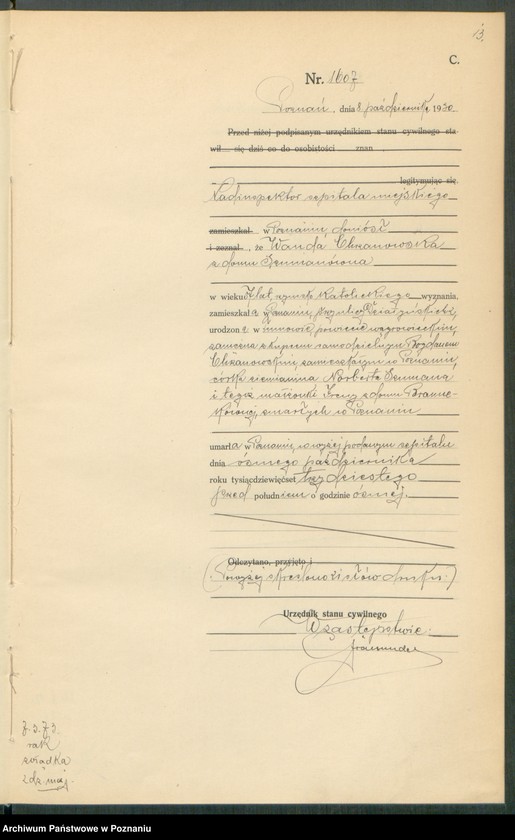 13.
C.
Nr. 1607
Poznań, dnia 8 października 1930
Przed niżej podpisanym urzędnikiem stanu cywilnego sta
wił się dziś co do osobistości znan
legitymując się
Nadinspektor szpitala miejskiego
zamieszkał w Poznaniu, doniósł
i zeznał, że Wanda Chrzanowska
z domu Szumanówna
w wieku lat, rzymsko katolickiego wyznania
zamieszkała w Poznaniu, przy ulicy
urodzona w powiecie wągrowieckim,
zamężna z kupcem samodzielnym Bogdanem
Chrzanowskim, zamieszkałym w Poznaniu,
córka ziemianina Norberta Szumana
i tegoż małżonki z domu
zmarłych w Poznaniu
umarła w Poznaniu, w wyżej podanym szpitalu
dnia ósmego października
roku tysiącdziewięćset trzydziestego
przed południem o godzinie ósmej.
Odczytano, przyjęto i
(Powyżej skreślono słów druku.)
Urzędnik stanu cywilnego
W zastępstwie:
rak
2 dz. maj.
Archiwum Państwowe w Poznaniu